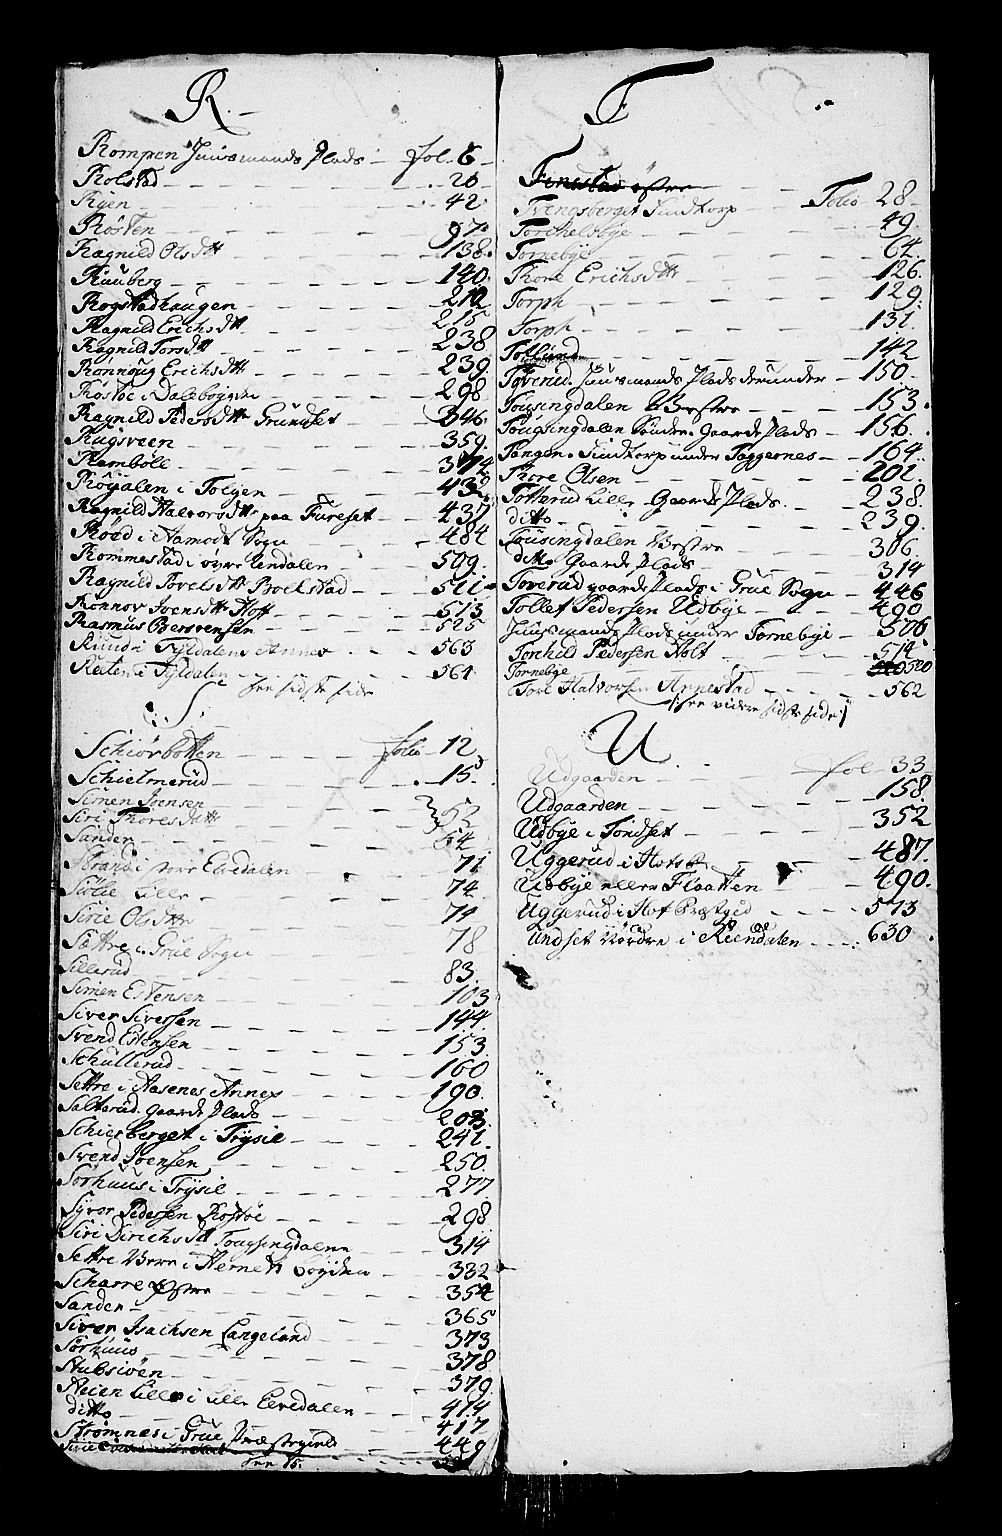 R.
Rompen Huusmands Plads - fol. 6
Rolstad - 20
Ryen - 42
Rösten - 97
Ragnild Olsdttr - 138
Ruuberg - 140
Rogstadhaugen - 212
Ragnild Erichsdttr - 215
Ragnild Torsdttr - 238
Rönnoug Erichsdttr - 239
Röstöe i Dalebøygden - 298
Ragnild Pedersdttr Grundset - 346
Rugsveen - 359
Rambøle - 374
Röÿdalen i Tolgen - 432
Ragnild Halvorsdttr paa Fureset - 437
Röed i Aamodt Sogn - 484
Rommestad i øvre Rendalen - 509
Ragnild Povelsdttr Bolkstad - 511
Ronnov Joensdttr Hoff - 513
Rasmus Bersvensen - 525
Ruud i Tyldalens Annex - 563
Reiten i Tyldalen - 564
See sidste side
S.
Schiörbotten - folio 12
Schielmerud - 15
Simen Joensen
Siri Thoresdatt } 52
Sanden - 54
Strand i store Elvedalen - 71
Siölie Lille - 74
Sirie Olsdttr - 74
Sættre i Grue Sogn - 78
Sillerud - 83
Simen Estensen - 103
Siver Siversen - 144
Svend Estensen - 153
Schullerud - 160
Settre i Aasenes Annex - 190
Salterud gaards Plads - 203
Schierberget i Trÿsil - 241
Svend Joensen - 250
Sörhuus i Trÿsil - 277
Syver Pedersen Rostöe - 298
Siri Dirichsdtt Tougsingdalen - 314
Settre Vern i Hernets Bøyden - 332
Scharre Østre - 354
Sanden - 365
Siver Isachsen Langeland - 373
Sörhuus - 378
Stubsiöen - 379
Steien Lille i Lille Elvedalen - 414
ditto - 417
Strömnæs i Grue Præstegield - 449
See 15.
T
Finstad østre
Tvengsberget Findtorp - Folio 28
Torchelsbye - 49
Tornebye - 64
Thore Erichsdttr - 126
Torph - 129
Torph - 131
Tollund - 142
Toverud. Huusmands Plads derunder - 150
Tousingdalen Vestre - 153
Tougsingdalen Sönder Gaards Plads - 156
Tangen Findtorp under Taggernes - 164
Thore Olsen - 201
Totterud Lille Gaards Plads - 238
ditto - 239
Tousingdalen Vestre - 306
ditto Gaards Plads - 314
Toverud gaards Plads i Grue Sogn - 446
Tollef Pedersen Udbye - 490
Huusmands Plads under Tornebye - 506
Torchild Pedersen Holt - 514
Tornebye - 520
Tore Halvorsen Annestad - 562
/: See videre sidste side :/
U
Udgaarden - fol 33
Udgaarden - 158
Udbye i Tøndset - 352
Uggerud i Hof - 487
Udbye eller Flaatten - 490
Uggerud i Hof Præstgield - 513
Undset Nordre i Reendalen - 630